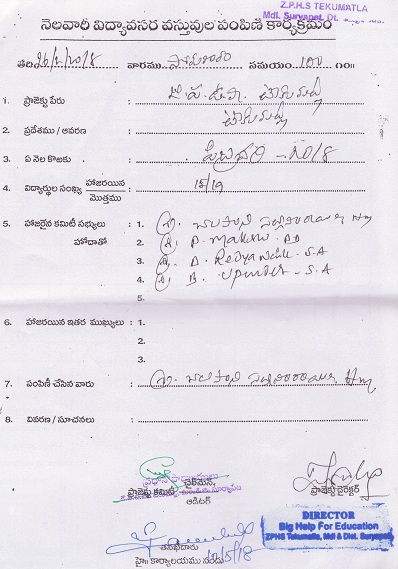 Z.P.H.S TEKUMATLA
Mdl. Suryapet, Dt.
నెలవారీ విద్యావసర వస్తువుల పంపిణి కార్యక్రమం
తేది: 26/2/2018 వారము సోమవారం సమయం: 1:00 గం॥
1. ప్రాజెక్టు పేరు : జి.ప.ఉ.పా. టేకుమట్ల
2. ప్రదేశము / ఆవరణ : టేకుమట్ల
3. ఏ నెల కొఱకు : ఫిబ్రవరి - 2018
4. విద్యార్థుల సంఖ్య హాజరయిన : 15/19
మొత్తము
5. హాజరైన కమిటీ సభ్యులు : 1. శ్రీ. HM
హోదాతో 2. శ్రీ. P. PD
3. శ్రీ. D. S.A
4. శ్రీ. B. Upender - S.A
5.
6. హాజరయిన ఇతర ముఖ్యులు : 1.
2.
3.
7. పంపిణీ చేసిన వారు : శ్రీ. HM
8. వివరణ / సూచనలు :
ప్రధానోపాధ్యాయులు
ప్రాజెక్టు కమిటీ చైర్‌మెన్,
ఆడిటర్
ప్రాజెక్టు డైరెక్టర్
DIRECTOR
Big Help For Education
ZPHS Tekumatla, Mdl & Dist. Suryapet
తనిఖీదారు
హై॥ కార్యాలయము నందు